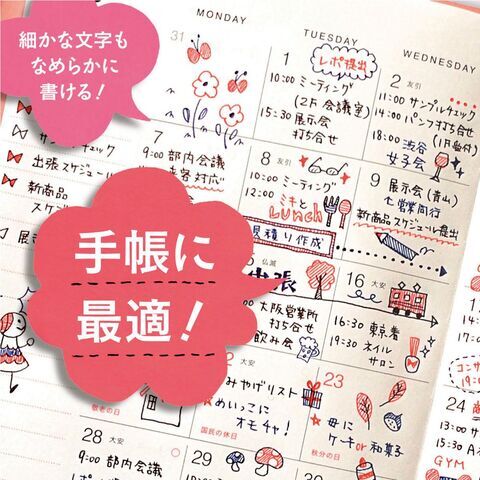 細かな文字も
なめらかに
書ける!
手帳に
最適!
MONDAY
TUESDAY
WEDNESDAY
31
1
レポ提出
10:00 ミーティング
(2F 会議室)
15:30 展示会
打ち合せ
2 友引
11:00 サンプルチェック
14:00 パンフ打ち合せ
(1F受付)
18:00 渋谷
女子会
チェック
出張スケジュール
新商品
7
9:00 部内会議
来客対応
8 友引
10:00 ミーティング
12:00 ミキと
Lunch
見積り作成
9 展示会(青山)
七営業同行
新商品スケジュール提出
仏滅
出張
大阪営業所
打ち合せ
飲み会
16 大安
16:30 東京着
19:30 ネイル
サロン
大安
みやげリスト
めいっこに
オモチャ!
国民の休日
敬老の日
23
母に
ケーキor和菓子
秋分の日
28 大安
9:00 部内会議
29
30
24
GYM